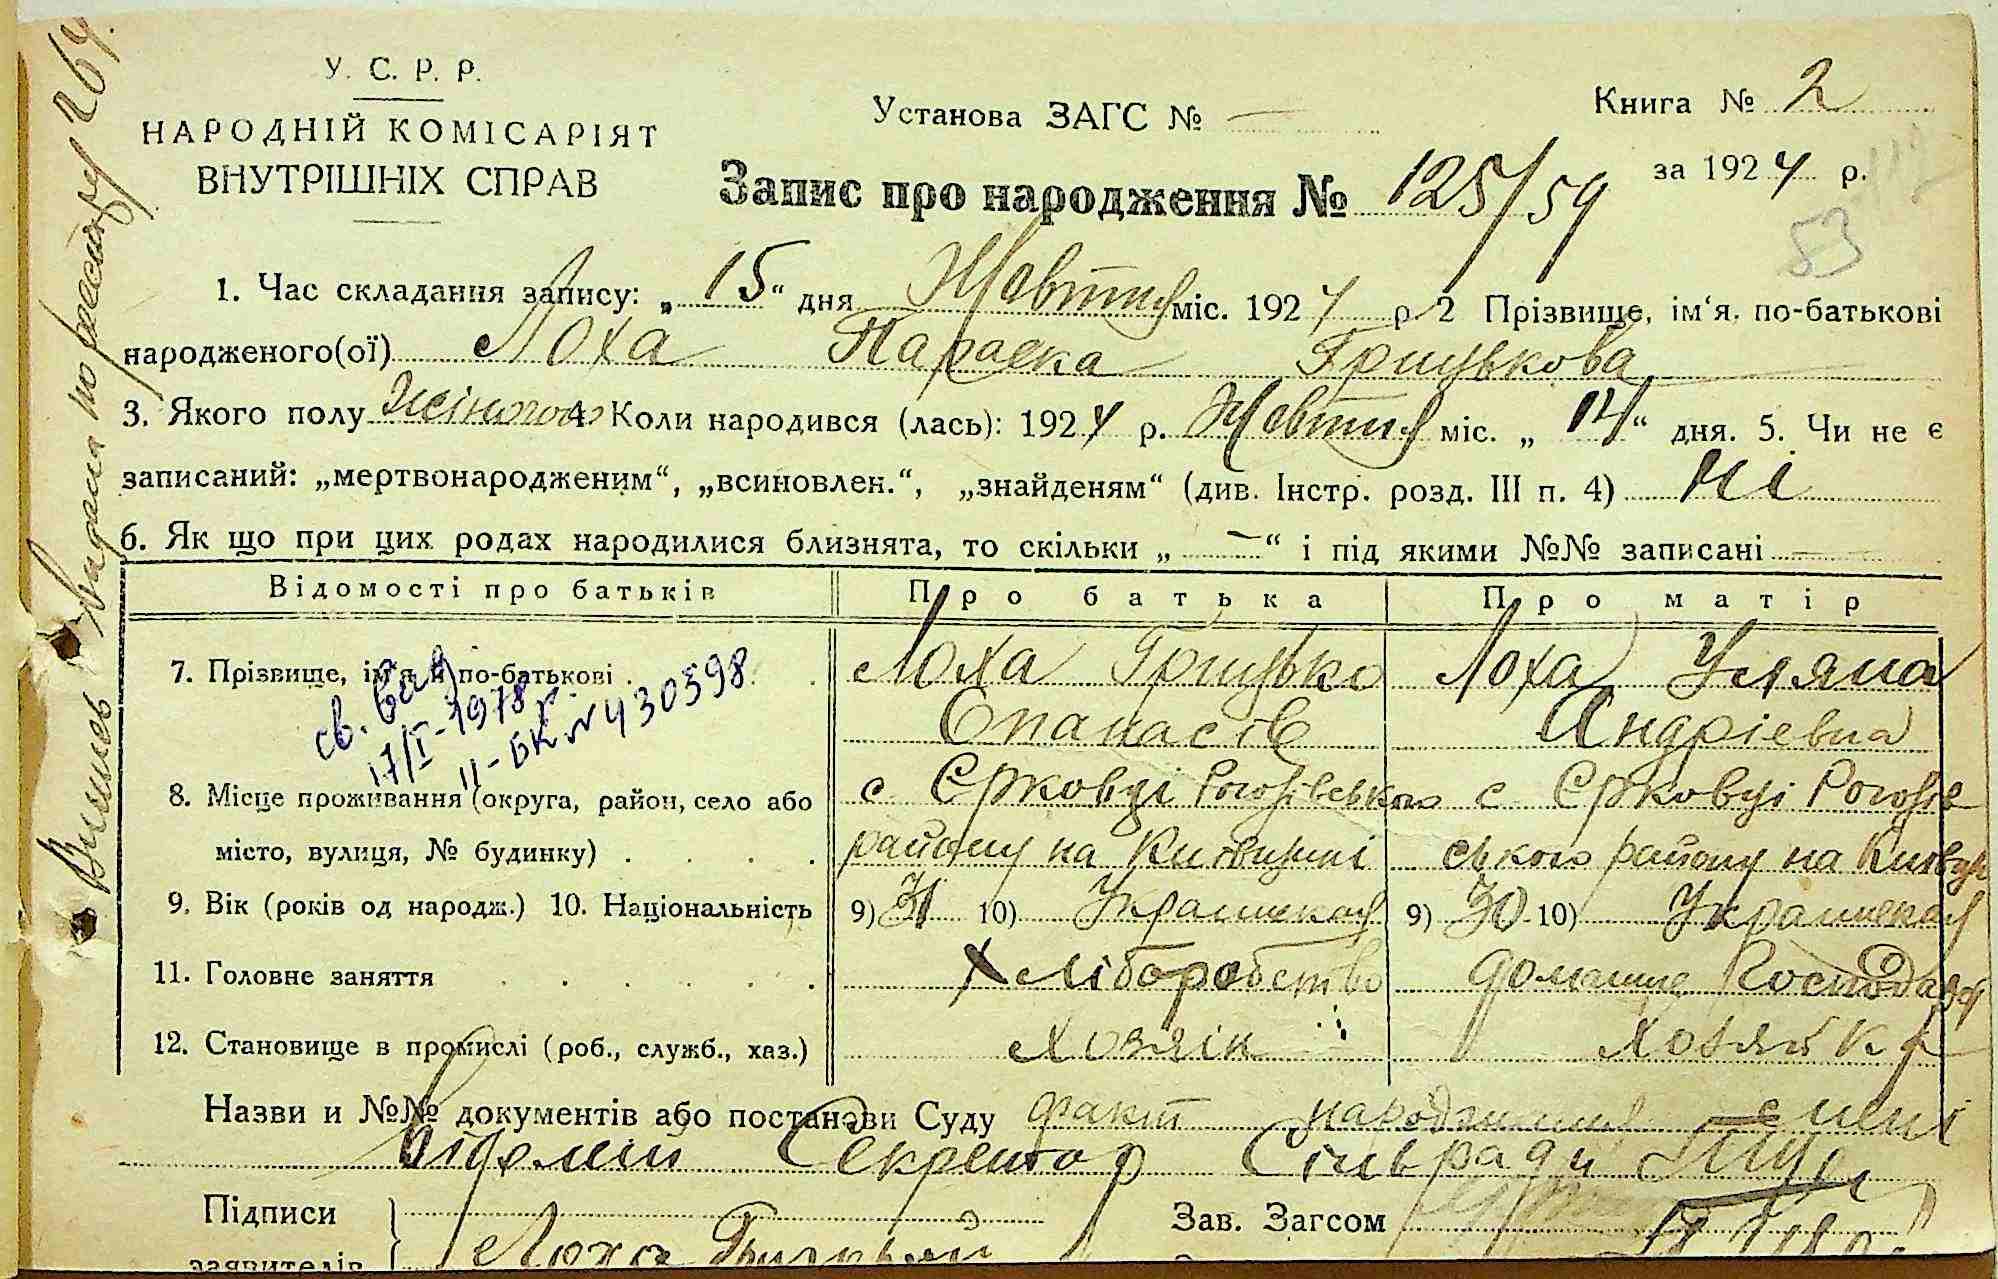 У. С. Р. Р.
НАРОДНІЙ КОМІСАРІЯТ
ВНУТРІШНІХ СПРАВ
Установа ЗАГС № —
Книга № 2
за 1924 р.
Запис про народження № 125/59
53
1. Час складання запису: „15“ дня Жовтня міс. 1924 р 2 Прізвище, ім‘я, по-батькові
народженого(ої) Лоха Параска Грицькова
3. Якого полу жіночого 4 Коли народився (лась): 1924 р. Жовтня міс. „14“ дня. 5. Чи не є
записаний: „мертвонародженим“, „всиновлен.“, „знайденям“ (див. Інстр. розд. III п. 4) ні
6. Як що при цих родах народилися близнята, то скільки „—“ і під якими №№ записані —
Відомості про батьків Про батька Про матір
7. Прізвище, ім'я й по-батькові . Лоха Грицько Лоха Уляна
Опанасів Андріевна
св. выд
17/I-1978 г.
II-БК № 430598
8. Місце проживання (округа, район, село або с Єрковці Рогозівського с Єрковці Рогозів
місто, вулиця, № будинку) . . . . району на Київщині ського району на
9. Вік (років од народж.) 10. Національність 9) 31 10) Украінская 9) 30 10) Украинская
11. Головне заняття . . . . . . Хліборобство домашне
12. Становище в промислі (роб., служб., хаз.) Хозяік хозяйка
Назви и №№ документів або постанови Суду факт народження мені
відомий Секретар Сільради
Підписи
заявителів
Лоха
Зав. Загсом